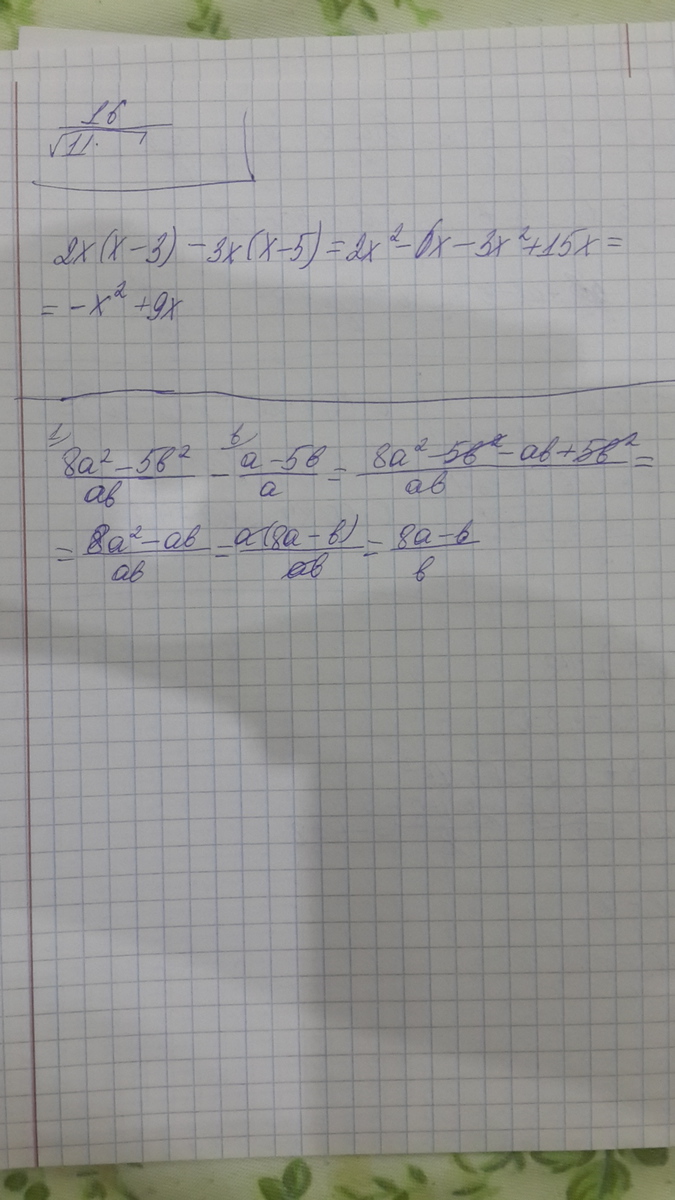 16
√11
2x(x-3)-3x(x-5)=2x²-6x-3x²+15x=
=-x²+9x
1) 8a²-5в²/ab - в) a-5в/a = 8a²-5в²-aв+5в²/ab =
= 8a²-aв/aв = a(8a-в)/aв = 8a-в/в